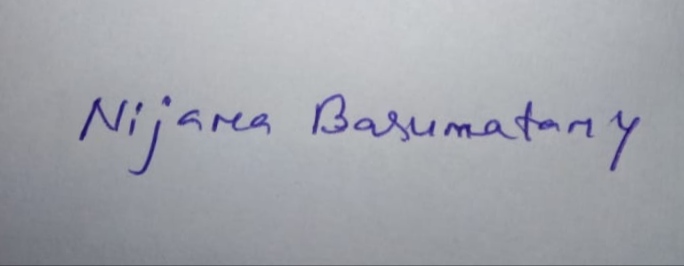 Nijarea Basumatary